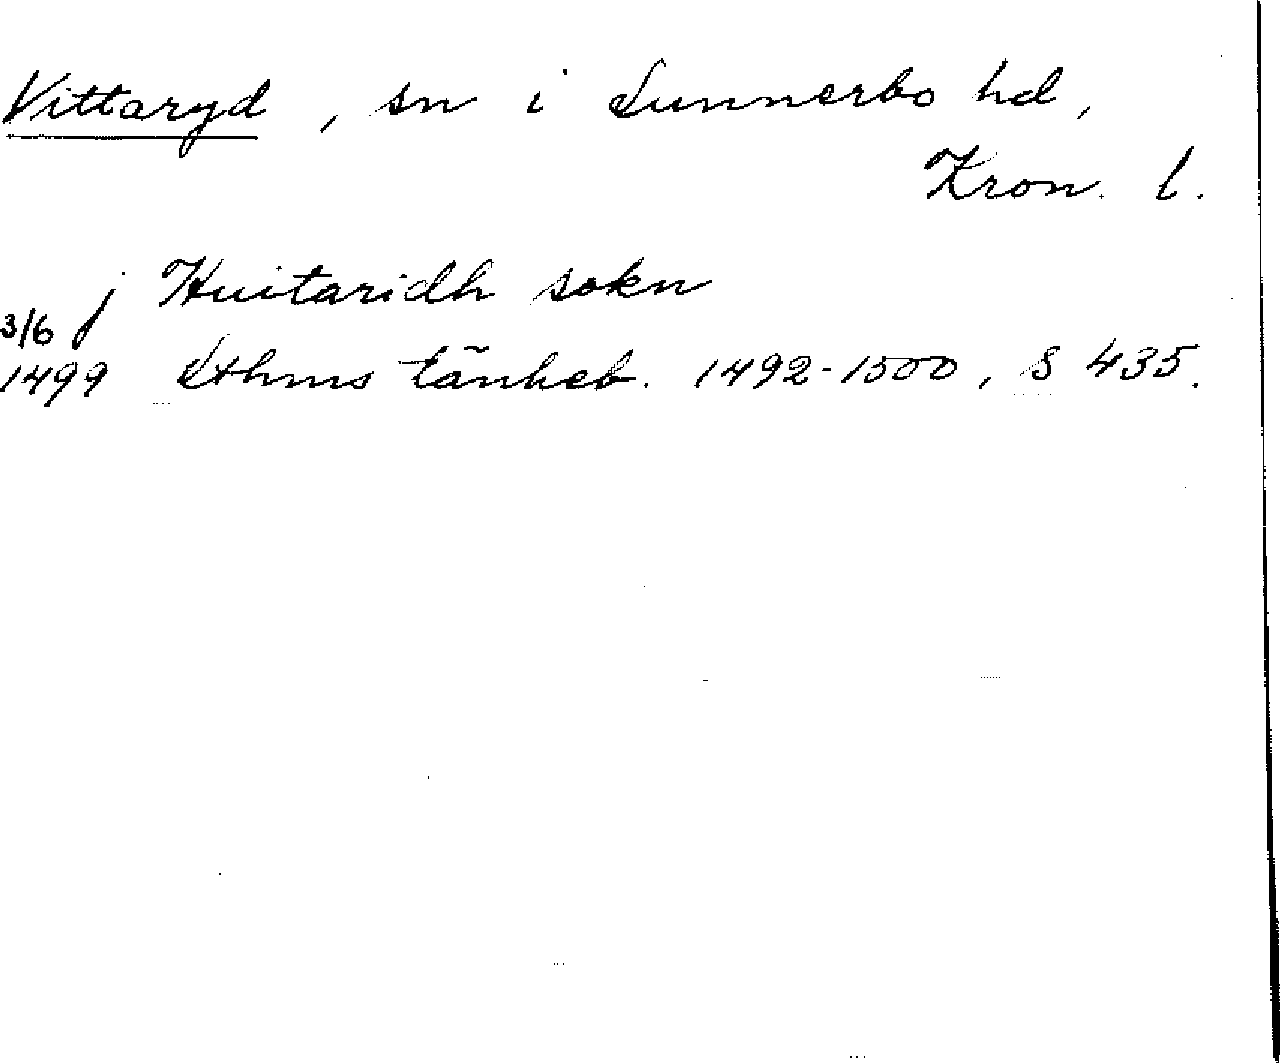 Vittaryd, sn i Sunnerbo hd,
Kron. l.
j Huitaridh sokn
3/6
1499 Sthms tänkeb. 1492-1500, s 435.